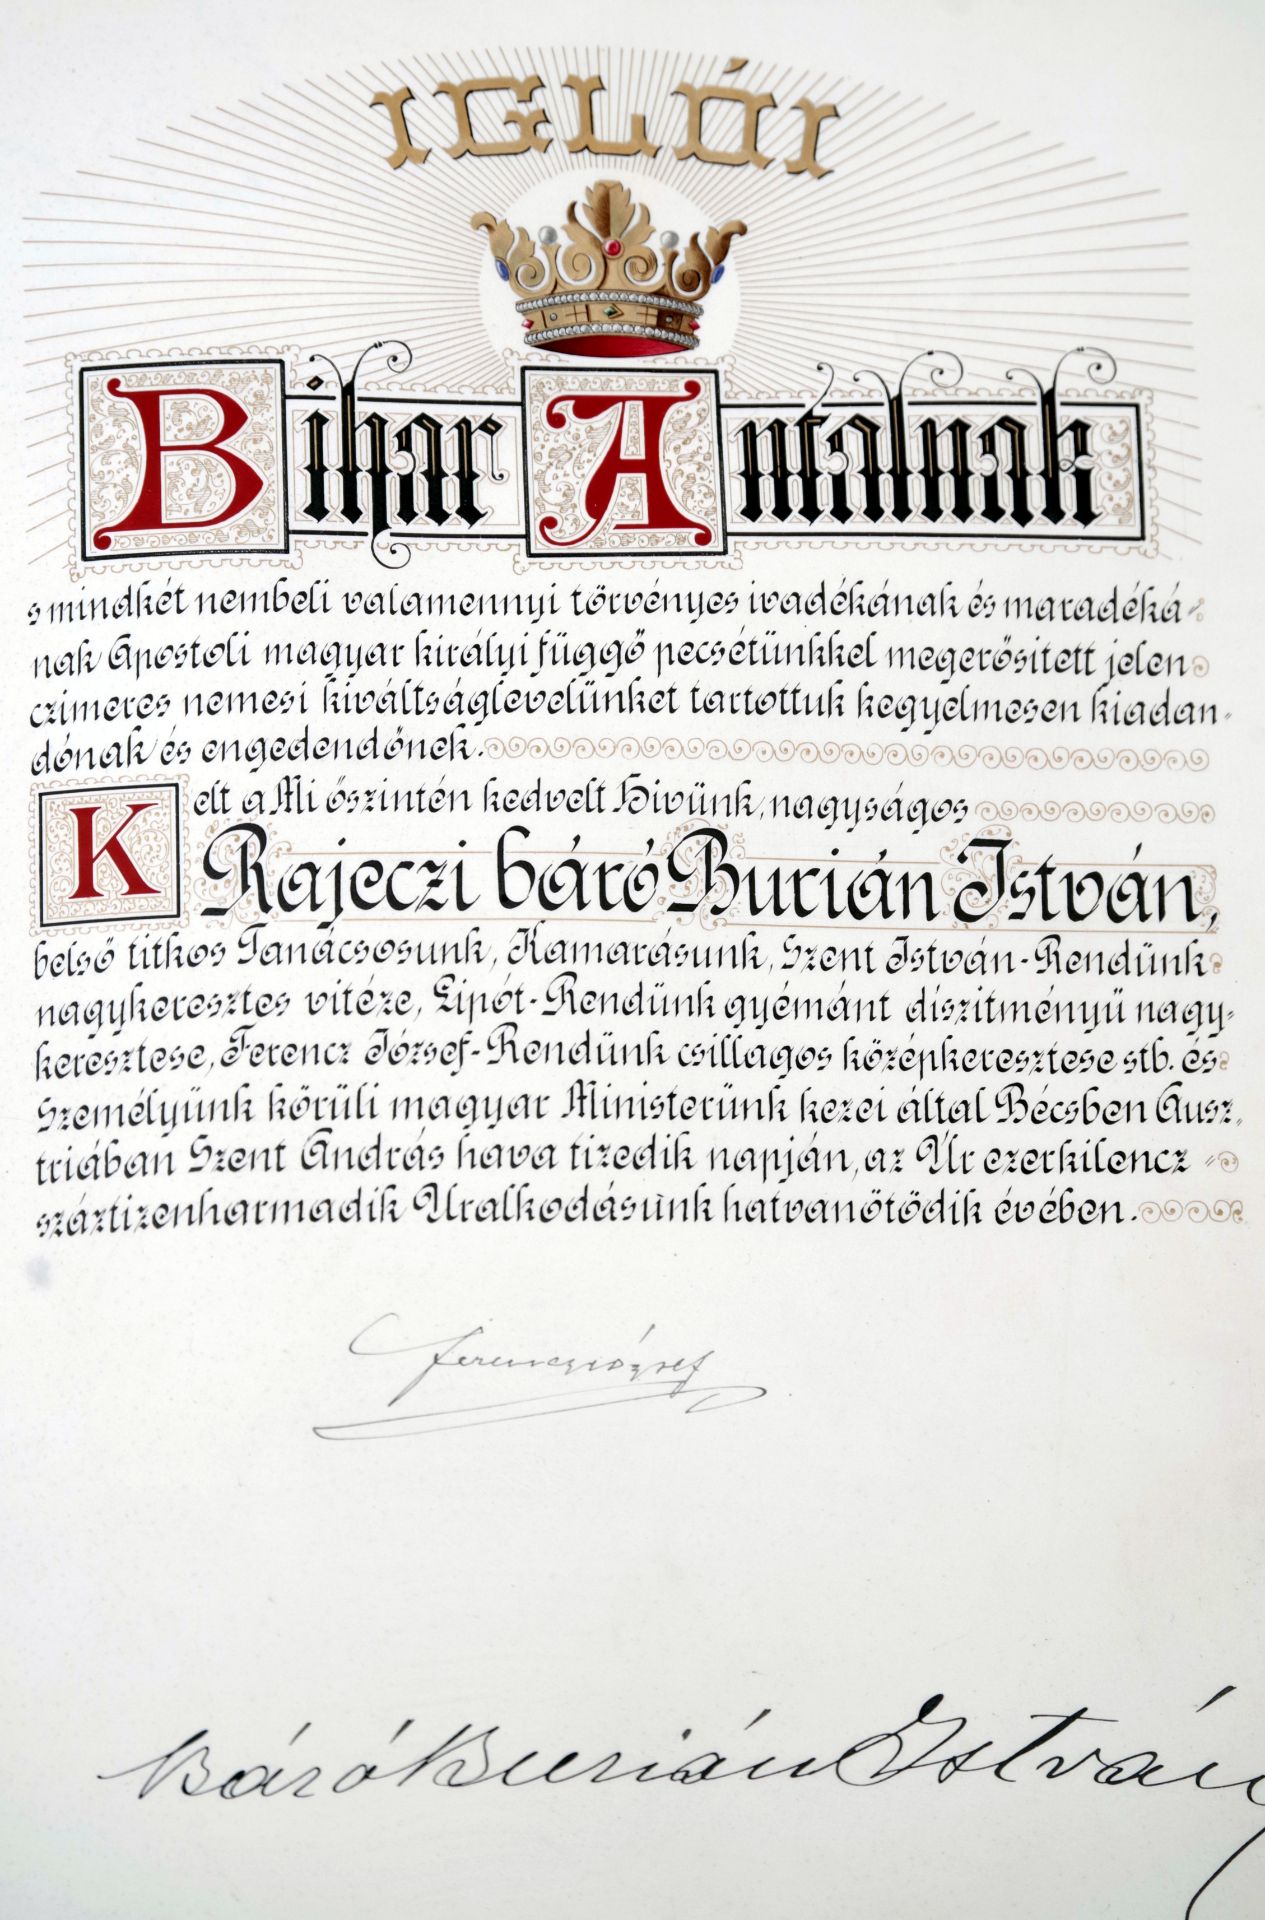 IGLÓI
Bihar Antalnak
s mindkét nembeli valamennyi törvényes ivadékának és maradéká-
nak Apostoli magyar királyi függő pecsétünkkel megerősitett jelen
czimeres nemesi kiváltságlevelünket tartottuk kegyelmesen kiadan-
dónak és engedendőnek.
Kelt a Mi őszintén kedvelt Hivünk, nagyságos
Rajeczi báró Burián István,
belső titkos Tanácsosunk, Kamarásunk, Szent István-Rendünk
nagykeresztes vitéze, Lipót-Rendünk gyémánt diszitményü nagy-
keresztese, Ferencz József-Rendünk csillagos középkeresztese stb. és
Személyünk körüli magyar Ministerünk kezei által Bécsben Ausz-
triában Szent András hava tizedik napján, az Úr ezerkilencz-
száztizenharmadik Uralkodásunk hatvanötödik évében.
Ferencz József
Báró Burián István